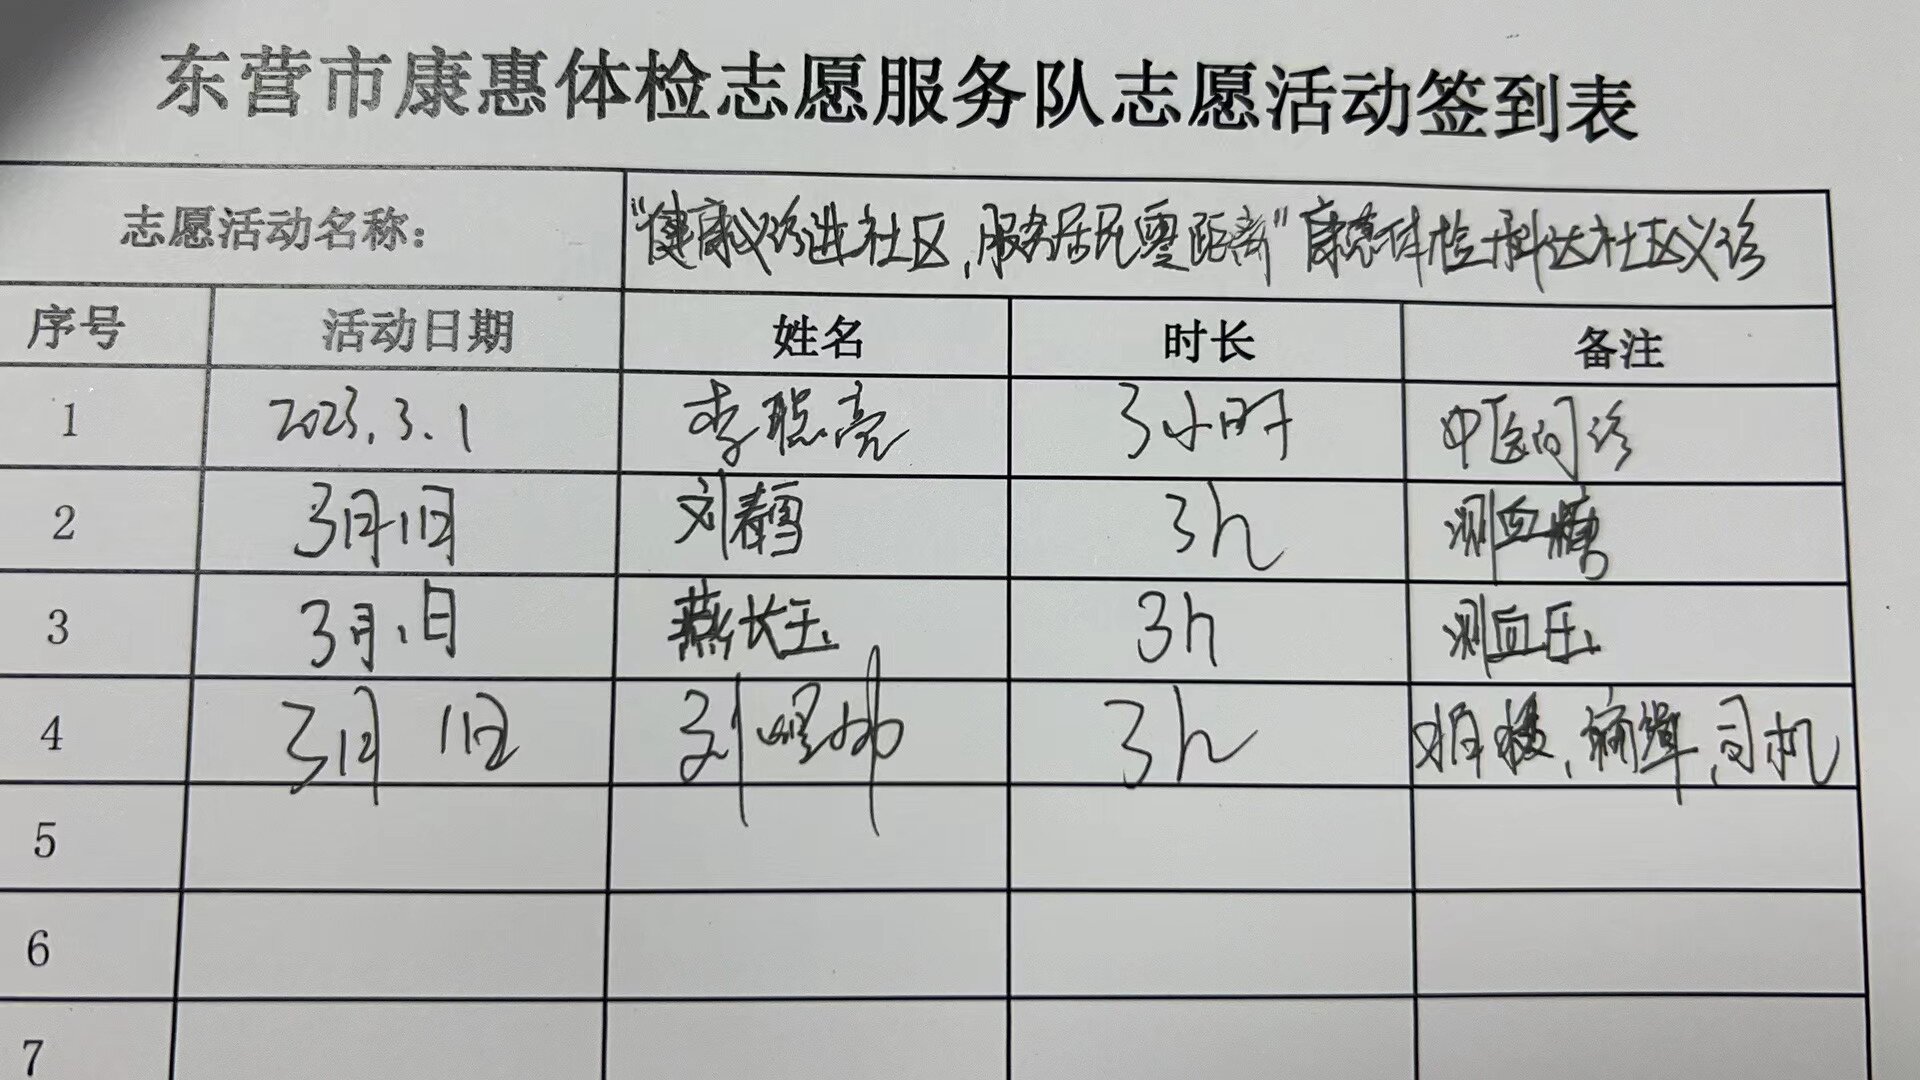 东营市康惠体检志愿服务队志愿活动签到表
志愿活动名称: "健康义诊进社区,服务居民零距离"康惠体检科达社区义诊
序号 活动日期 姓名 时长 备注
1 2023.3.1 李聪亮 3小时 中医问诊
2 3月1日 刘春雪 3h 测血糖
3 3月1日 燕长玉 3h 测血压
4 3月1日 刘 3h 、编辑、司机
5
6
7